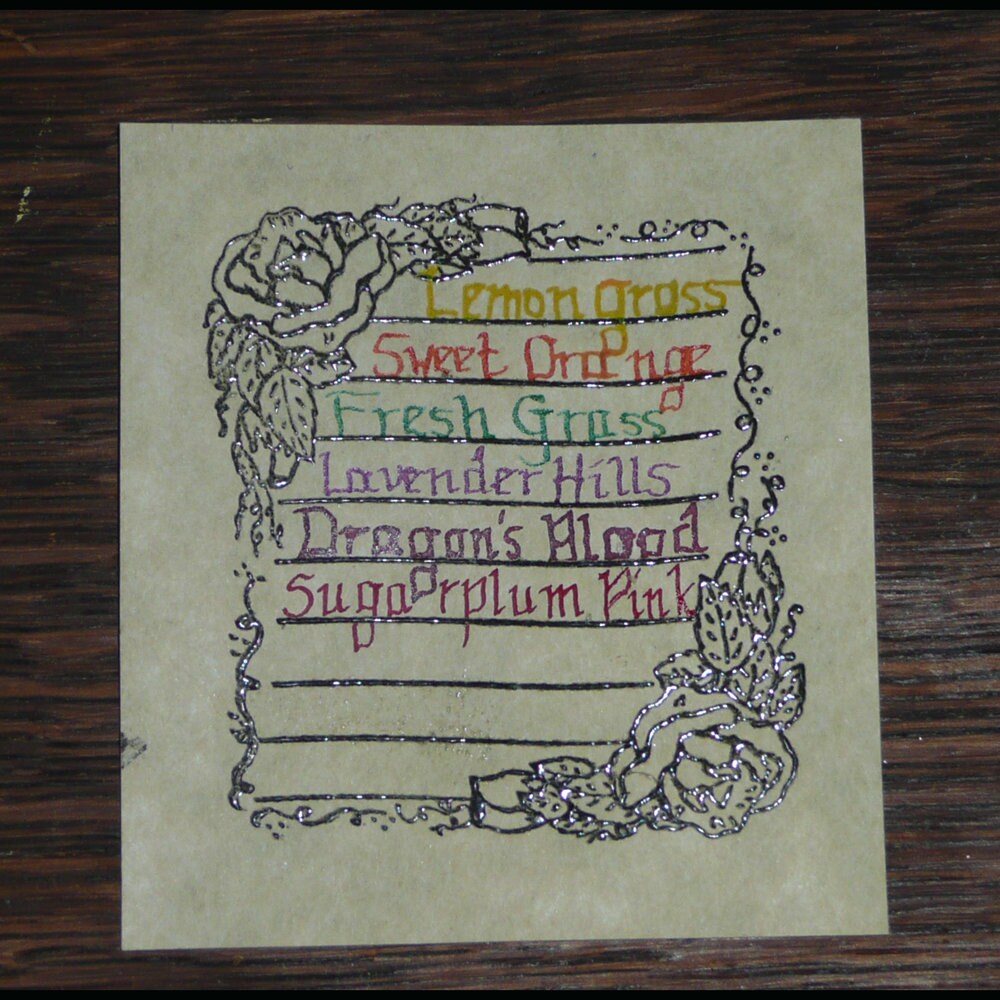 Lemon Grass
Sweet Orange
Fresh Grass
Lavender Hills
Dragon's Blood
Sugarplum Pink